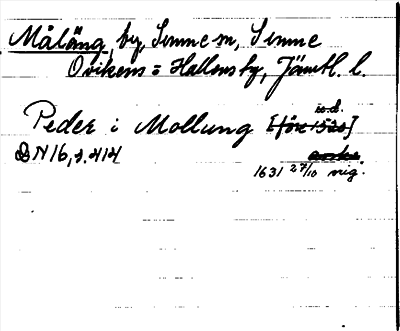 Målång, by, Sunne sn, Sunne
Ovikens = Hallens tg, Jämtl. l.
u.d.
Peder i Mollung [före 1520]
DN 16, s. 414
avskr.
1631 27/10 vig.